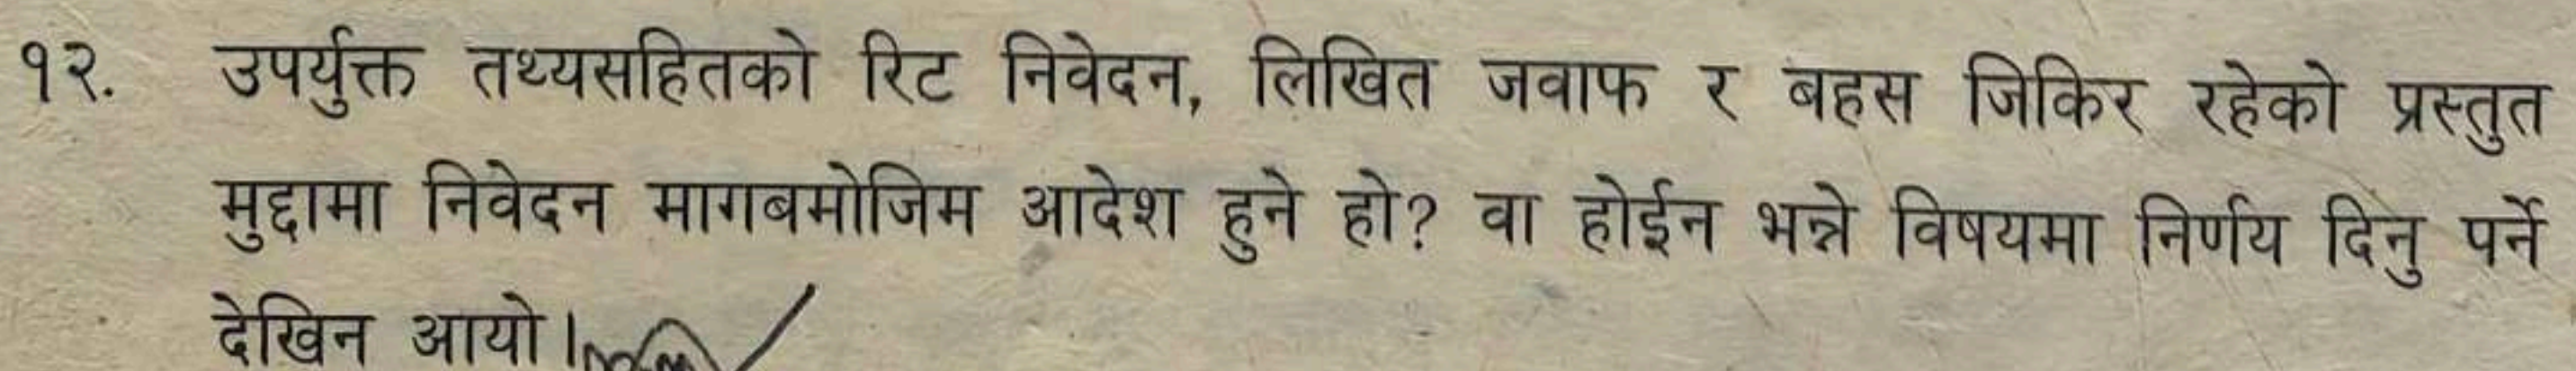 १२. उपर्युक्त तथ्यसहितको रिट निवेदन, लिखित जवाफ र बहस जिकिर रहेको प्रस्तुत
मुद्दामा निवेदन मागबमोजिम आदेश हुने हो? वा होईन भन्ने विषयमा निर्णय दिनु पर्ने
देखिन आयो।